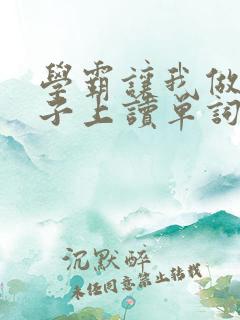 學霸讓我做
子上讀單詞
沉默醉
未經同意禁止轉載